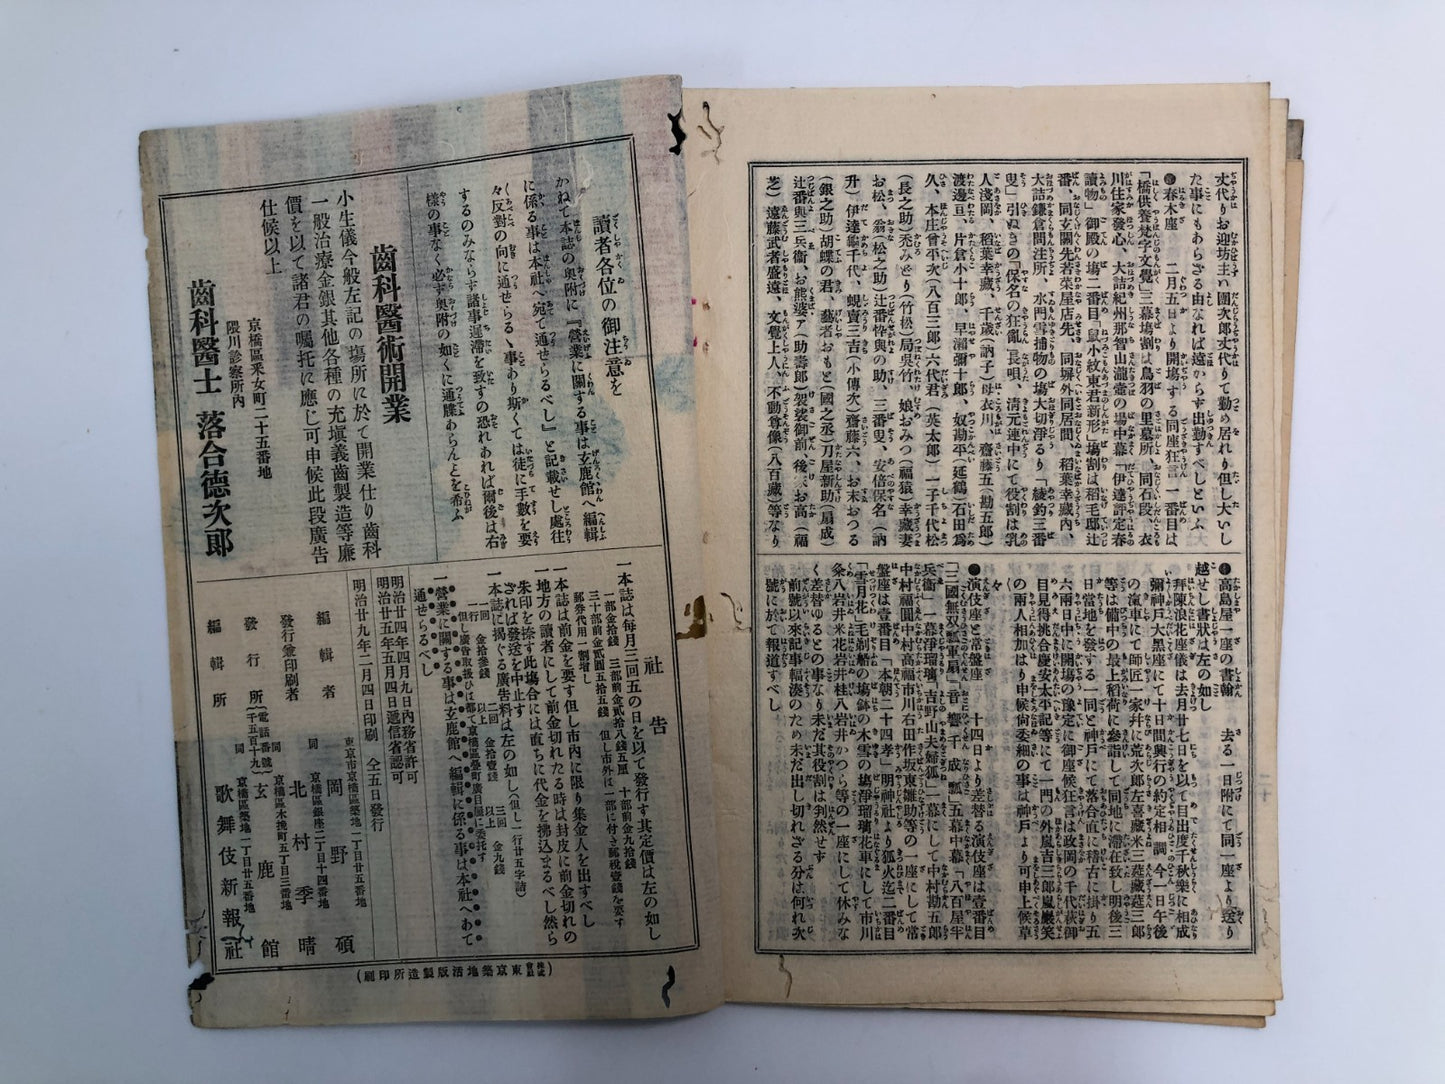 丈代りお迎坊主ハ團次郎丈代りて勤め居れり但し大いし
た事にもあらざる由なれば遠からず出勤すべしといふ
●春木座　二月五日より開塲する同座狂言　一番目は
「橋供養梵字文覺」三幕塲割は鳥羽の里墓所、同石段、衣
川住家發心、大詰紀州那智山瀧壺の塲中幕「伊達評定春
讀物」御殿の塲二番目「鼠小紋東君新形」塲割は稻毛邸辻
番、同玄關先若菜屋店先、同塀外同居間、稻葉幸藏内、
大詰鎌倉問注所、水門雪捕物の塲大切淨るり「綾釣三番
叟」引ぬき「保名の狂亂」長唄、清元連中にて役割は乳
人淺岡、稻葉幸藏、千歳(訥子)母衣川、齋藤五(勘五郎)
渡邊亘、片倉小十郎、早瀬彌十郎、奴勘平(延鶴)石田爲
久、本庄曾平次(八百三郎)六代君(英太郎)一子千代松
(長之助)禿みどり(竹松)局呉竹、娘おみつ(福猿)幸藏妻
お松、翁(松之助)辻番忰與の助、三番叟、安倍保名(訥
升)伊達龜千代、蜆賣三吉(小傳次)齋藤六、お末おつる
(銀之助)胡蝶の君、藝者おもと(國之丞)刀屋新助(扇成)
辻番與三兵衞、お熊婆ア(助壽郎)袈裟御前、後、お高(福
芝)遠藤武者盛遠、文覺上人、不動尊像(八百藏)等なり
●高島座一座の書翰　去る一日附にて同一座より送り
越せし書狀は左の如し
拜陳浪花座儀は去月廿七日を以て目出度千秋樂に相成
彌神戸大黑座にて十日間興行の約定相調今一日午後
の滊車にて師匠一家幷に荒次郎左喜藏米三莚藏莚三郎
等は備中の最上稻荷に參詣して同地に滯在致し明後三
日當地を發する一同と神戸にて落合直に稽古に掛り五
六兩日中に開塲の豫定に御座候狂言は政岡の千代萩御
目見得挑合慶安太平記等にて一門の外嵐吉三郎嵐巖笑
の兩人相加はり申候尚委細の事は神戸より可申上候草
々
●演伎座と常盤座　十四日より差替る演伎座は壹番目
「三國無双瓢軍扇」音響千成瓢」五幕中幕「八百屋半
兵衞」一幕淨瑠璃「吉野山夫婦狐」一幕にして中村勘五郎
中村福圓中村高福市川右田作坂東雛助等の一座にして常
盤座は壹番目「本朝二十四孝」明神社より狐火迄二番目
「雪月花」毛剃船の塲鉢の木雪の塲淨瑠璃花車にして市川
粂八岩井米花岩井桂八岩井かつら等の一座にして休みな
く差替ゆるとの事なり未だ其役割は判然せず
前號以來記事輻湊のため未だ出し切れざる分は何れ次
號に於て報道すべし
讀者各位の御注意を
かねて本誌の奥附に『營業に關する事は玄鹿館へ編輯
に係る事は本社へ宛て通せらるべし』と記載せし處往
々反對の向に通せらるゝ事あり斯くては徒に手數を要
するのみならす諸事遲滯を致すの恐れあれば爾後は右
樣の事なく必ず奥附の如くに通牒あらんとを希ふ
齒科醫術開業
小生儀今般左記の塲所に於て開業仕り齒科
一般治療金銀其他各種の充塡義齒製造等廉
價を以て諸君の囑托に應じ可申候此段廣告
仕候以上
京橋區采女町二十五番地
隈川診察所内
齒科醫士　落合德次郎
社告
一本誌は毎月三回五の日を以て發行す其定價は左の如し
一部金拾錢　三部前金貳拾八錢五厘　十部前金九拾錢
三十部前金貳圓五拾五錢　但し市外は一部に付き郵税壹錢を要す
郵券代用一割增し
一本誌は前金を要す但し市内に限り集金人を出すべし
一地方の讀者にして前金切れたる時は封皮に前金切れの
朱印を捺す此塲合には直ちに代金を拂込まるべし然ら
ざれば發送を中止す
一本誌に揭ぐる廣告料は左の如し(但し一行廿五字詰)
一回　金拾參錢　二回以上　金拾壹錢　三回以上　金九錢
但し廣告取扱ひは都て京橋區疊町廣目屋に委托す
一營業に關する事は玄鹿館へ編輯に係る事は本社へあて
通せらるべし
明治廿四年四月九日内務省許可
明治廿五年五月四日遞信省認可
明治廿九年二月四日印刷　仝五日發行
東京市京橋區築地一丁目廿五番地
編輯者　岡野碩
京橋區銀座二丁目十四番地
發行兼印刷者　同　北村季晴
京橋區木挽町五丁目三番地
發行所　(電話番號千五百十九)　玄鹿館
同京橋區築地一丁目廿五番地
編輯所　歌舞伎新報社
(株式會社東京築地活版製造所印刷)